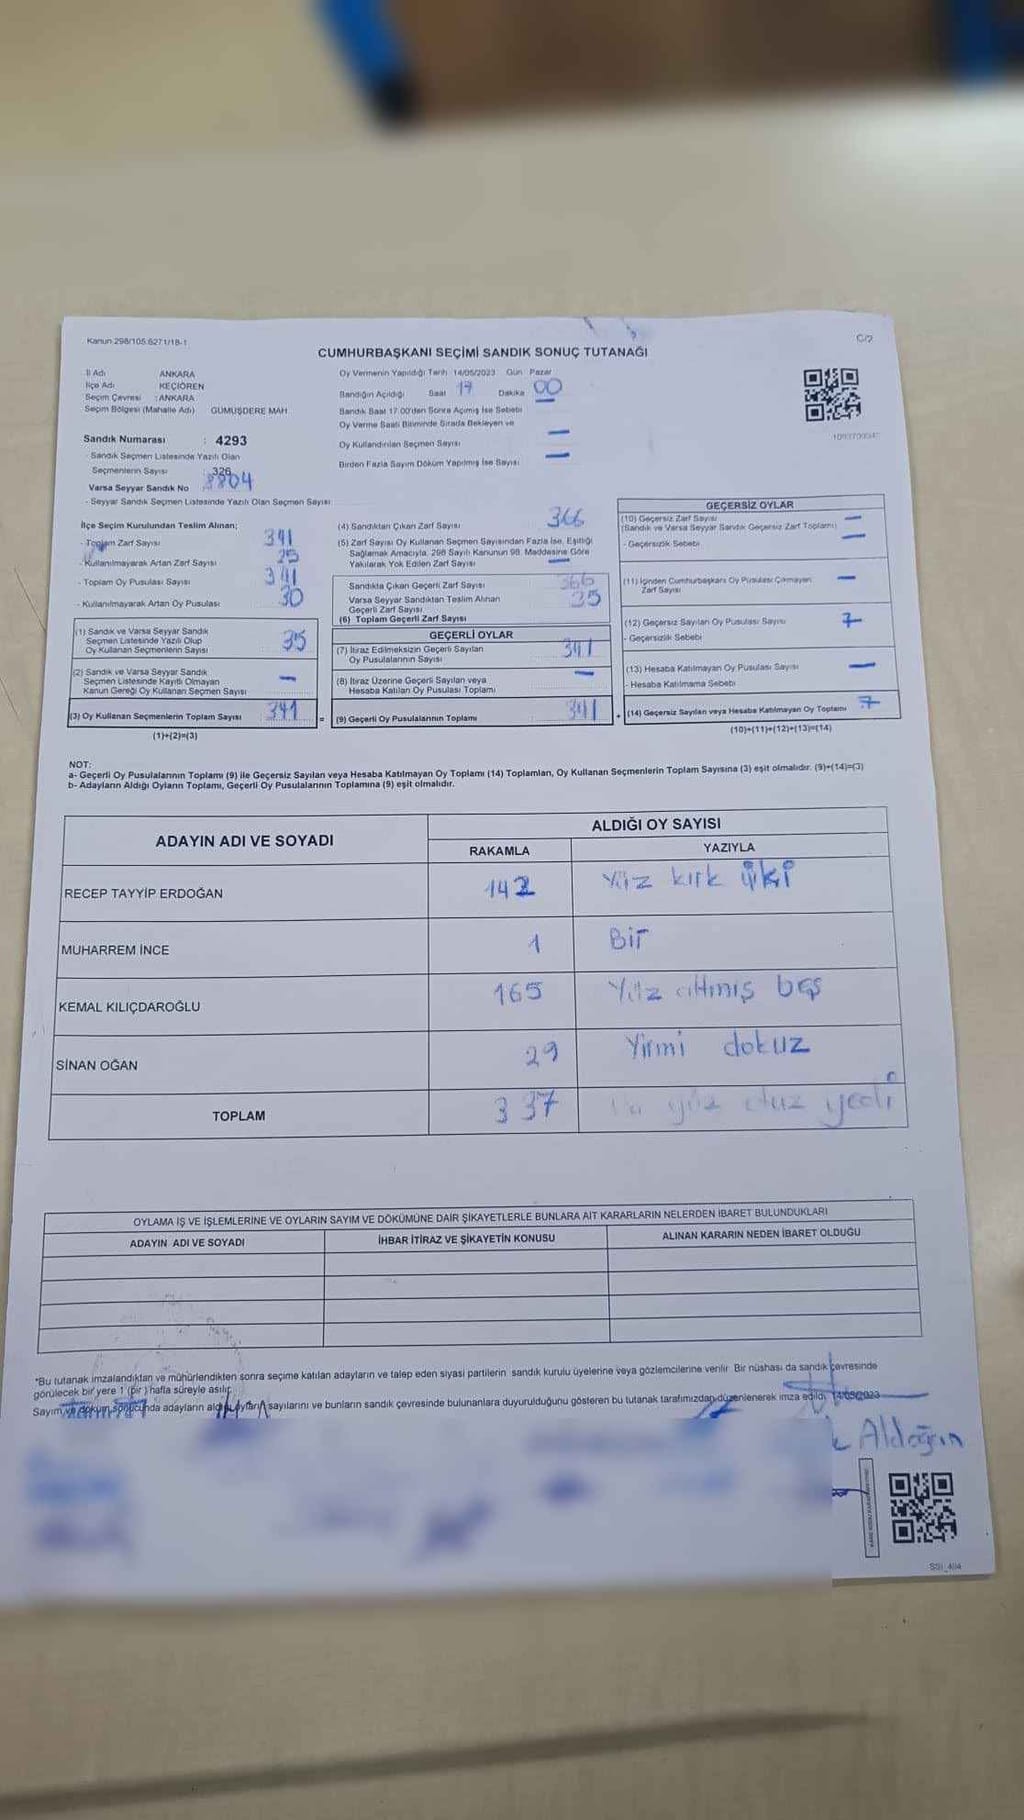 Kanun 298/105.6271/18-1
C/2
CUMHURBAŞKANI SEÇİMİ SANDIK SONUÇ TUTANAĞI
İl Adı ANKARA
İlçe Adı KEÇİÖREN
Seçim Çevresi : ANKARA
Seçim Bölgesi (Mahalle Adı) GÜMÜŞDERE MAH.
Sandık Numarası : 4293
- Sandık Seçmen Listesinde Yazılı Olan
Seçmenlerin Sayısı : 326
Varsa Seyyar Sandık No 8804
- Seyyar Sandık Seçmen Listesinde Yazılı Olan Seçmen Sayısı
Oy Vermenin Yapıldığı Tarih 14/05/2023 Gün Pazar
Sandığın Açıldığı Saat 17 Dakika 00
Sandık Saat 17.00'den Sonra Açılmış İse Sebebi
Oy Verme Saati Bitiminde Sırada Bekleyen ve
Oy Kullandırılan Seçmen Sayısı —
Birden Fazla Sayım Döküm Yapılmış İse Sayısı —
İlçe Seçim Kurulundan Teslim Alınan;
- Toplam Zarf Sayısı 341
- Kullanılmayarak Artan Zarf Sayısı 25
- Toplam Oy Pusulası Sayısı 341
- Kullanılmayarak Artan Oy Pusulası 30
(1) Sandık ve Varsa Seyyar Sandık
Seçmen Listesinde Yazılı Olup
Oy Kullanan Seçmenlerin Sayısı 35
(2) Sandık ve Varsa Seyyar Sandık
Seçmen Listesinde Kayıtlı Olmayan
Kanun Gereği Oy Kullanan Seçmen Sayısı —
(3) Oy Kullanan Seçmenlerin Toplam Sayısı 341 =
(1)+(2)=(3)
(4) Sandıktan Çıkan Zarf Sayısı 366
(5) Zarf Sayısı Oy Kullanan Seçmen Sayısından Fazla İse, Eşitliği
Sağlamak Amacıyla, 298 Sayılı Kanunun 98. Maddesine Göre
Yakılarak Yok Edilen Zarf Sayısı —
Sandıkta Çıkan Geçerli Zarf Sayısı 366
Varsa Seyyar Sandıktan Teslim Alınan
Geçerli Zarf Sayısı 35
(6) Toplam Geçerli Zarf Sayısı
GEÇERLİ OYLAR
(7) İtiraz Edilmeksizin Geçerli Sayılan
Oy Pusulalarının Sayısı 341
(8) İtiraz Üzerine Geçerli Sayılan veya
Hesaba Katılan Oy Pusulası Toplamı —
(9) Geçerli Oy Pusulalarının Toplamı 341 +
GEÇERSİZ OYLAR
(10) Geçersiz Zarf Sayısı —
(Sandık ve Varsa Seyyar Sandık Geçersiz Zarf Toplamı) —
- Geçersizlik Sebebi
(11) İçinden Cumhurbaşkanı Oy Pusulası Çıkmayan —
Zarf Sayısı
(12) Geçersiz Sayılan Oy Pusulası Sayısı 7
- Geçersizlik Sebebi
(13) Hesaba Katılmayan Oy Pusulası Sayısı —
- Hesaba Katılmama Sebebi
(14) Geçersiz Sayılan veya Hesaba Katılmayan Oy Toplamı 7
(10)+(11)+(12)+(13)=(14)
NOT:
a- Geçerli Oy Pusulalarının Toplamı (9) ile Geçersiz Sayılan veya Hesaba Katılmayan Oy Toplamı (14) Toplamları, Oy Kullanan Seçmenlerin Toplam Sayısına (3) eşit olmalıdır. (9)+(14)=(3)
b- Adayların Aldığı Oyların Toplamı, Geçerli Oy Pusulalarının Toplamına (9) eşit olmalıdır.
ADAYIN ADI VE SOYADI
ALDIĞI OY SAYISI
RAKAMLA YAZIYLA
RECEP TAYYİP ERDOĞAN 142 Yüz kırk iki
MUHARREM İNCE 1 Bir
KEMAL KILIÇDAROĞLU 165 Yüz altmış beş
SİNAN OĞAN 29 Yirmi dokuz
TOPLAM 337 yüz otuz yedi
OYLAMA İŞ VE İŞLEMLERİNE VE OYLARIN SAYIM VE DÖKÜMÜNE DAİR ŞİKAYETLERLE BUNLARA AİT KARARLARIN NELERDEN İBARET BULUNDUKLARI
ADAYIN ADI VE SOYADI İHBAR İTİRAZ VE ŞİKAYETİN KONUSU ALINAN KARARIN NEDEN İBARET OLDUĞU
*Bu tutanak imzalandıktan ve mühürlendikten sonra seçime katılan adayların ve talep eden siyasi partilerin sandık kurulu üyelerine veya gözlemcilerine verilir. Bir nüshası da sandık çevresinde
görülecek bir yere 1 (bir) hafta süreyle asılır.
Sayım ve döküm sonucunda adayların aldığı oyların sayılarını ve bunların sandık çevresinde bulunanlara duyurulduğunu gösteren bu tutanak tarafımızdan düzenlenerek imza edildi. 14/05/2023
Aldoğan
SSI_404